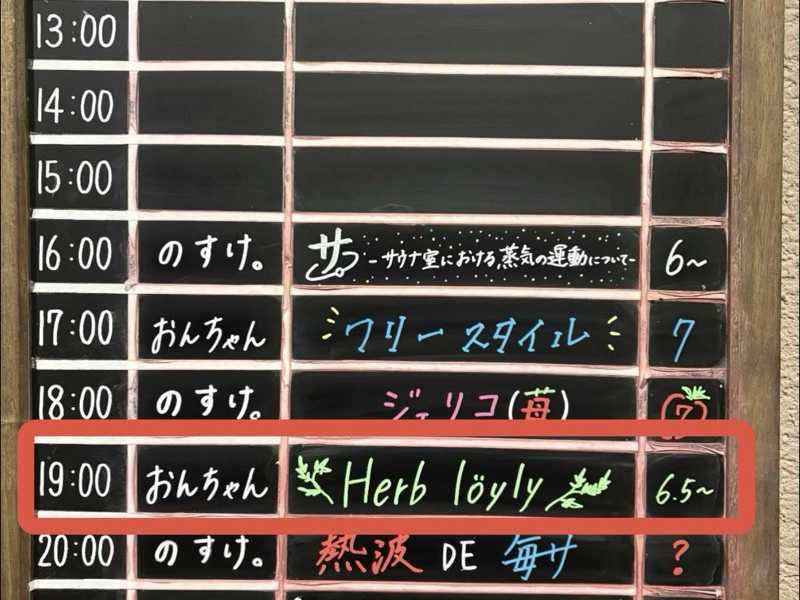 13:00
14:00
15:00
16:00 のすけ。 サ -サウナ室における蒸気の運動について- 6~
17:00 おんちゃん フリースタイル 7
18:00 のすけ。 ジェリコ(苺) 7
19:00 おんちゃん Herb löyly 6.5~
20:00 のすけ。 熱波 DE 毎サ ?